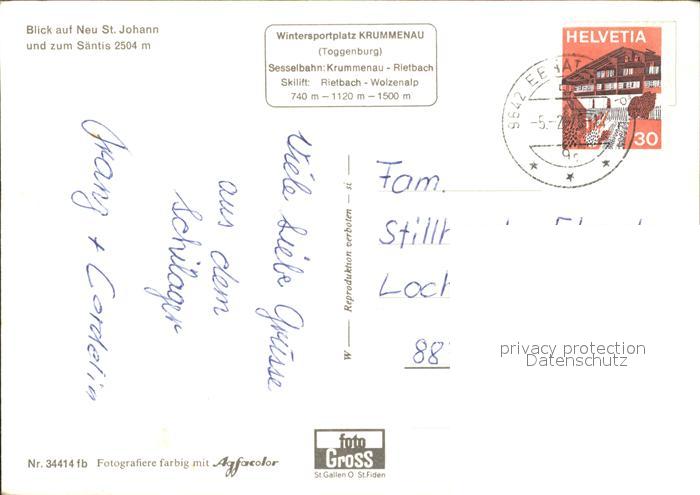 Blick auf Neu St. Johann
und zum Säntis 2504 m
Wintersportplatz KRUMMENAU
(Toggenburg)
Sesselbahn: Krummenau - Rietbach
Skilift: Rietbach - Wolzenalp
740 m – 1120 m – 1500 m
HELVETIA
30
9642 EBNAT
-5.-2.
Viele liebe Grüsse
aus dem
Schilager
Franz + Cordelia
W — Reproduktion verboten — si —
Fam.
Stillh
Loch
88
privacy protection
Datenschutz
Nr. 34414 fb Fotografiere farbig mit Agfacolor
foto
Gross
St.Gallen O St.Fiden